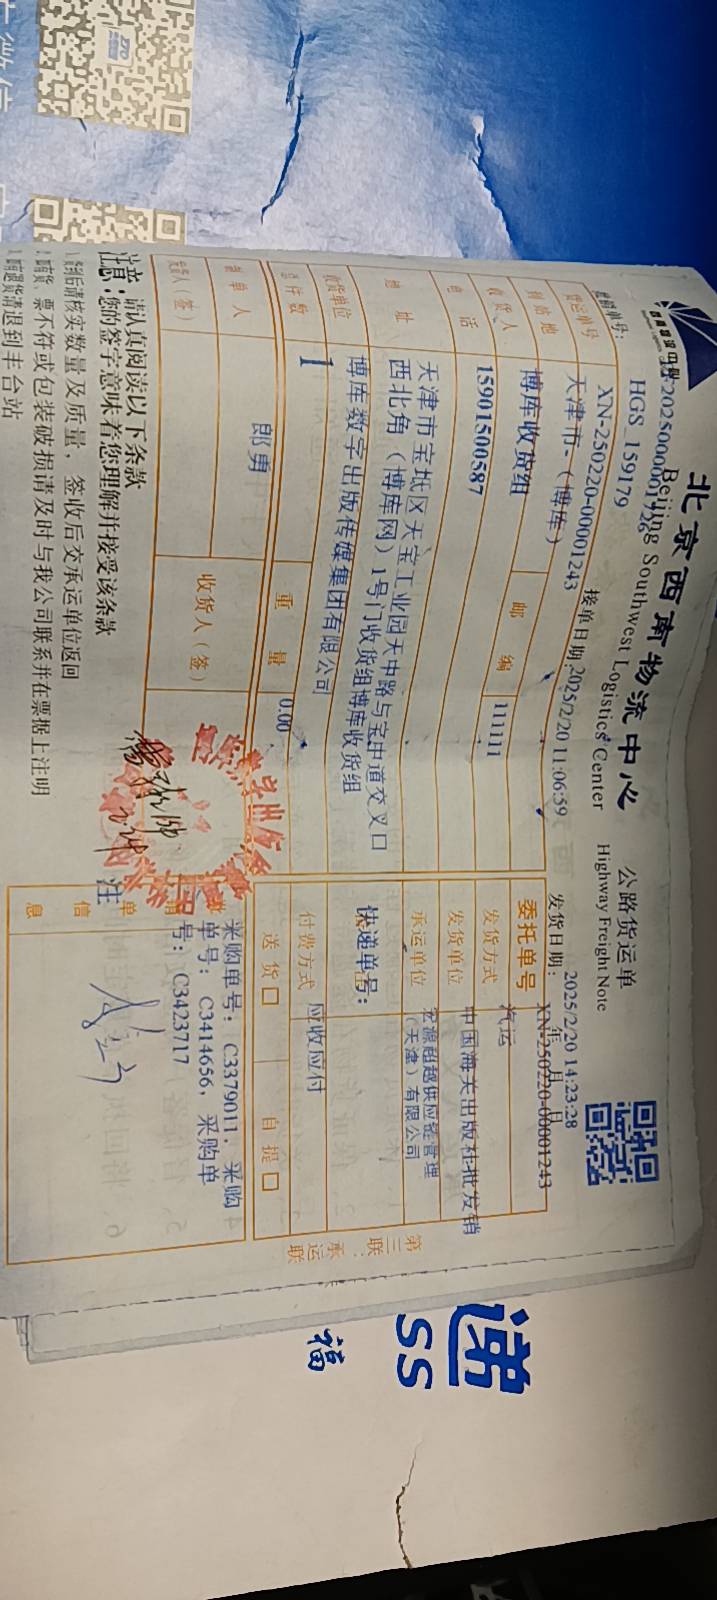 北京西南物流中心
Beijing Southwest Logistics Center
公路货运单
Highway Freight Note
HGS_159179
接单日期:2025/2/20 11:06:59
发货日期: 年 月 日
2025/2/20 14:23:28
货运单号 XN-250220-00001243
委托单号 XN-250220-00001243
到站地 天津市-（博库）
发货方式 汽运
收货人 博库收货组
邮编 111111
发货单位 中国海关出版社批发销
电话 15901500587
承运单位 宏源超越供应链管理
（天津）有限公司
地址 天津市宝坻区天宝工业园天中路与宝中道交叉口
西北角（博库网）1号门收货组博库收货组
快递单号:
收货单位 博库数字出版传媒集团有限公司
付费方式 应收应付
总件数 1
重量 0.00
送货□ 自提□
制单人 郎勇
收货人（签）
采购单号: C3379011, 采购
单号: C3414656, 采购单
号: C3423717
单
信
息
注
第三联:承运联
注意: 请认真阅读以下条款
您的签字意味着您理解并接受该条款
1. 货到后请核实数量及质量，签收后交承运单位返回
2. 如有货、票不符或包装破损请及时与我公司联系并在票据上注明
3. 如有退货请退到丰台站
递
SS
福